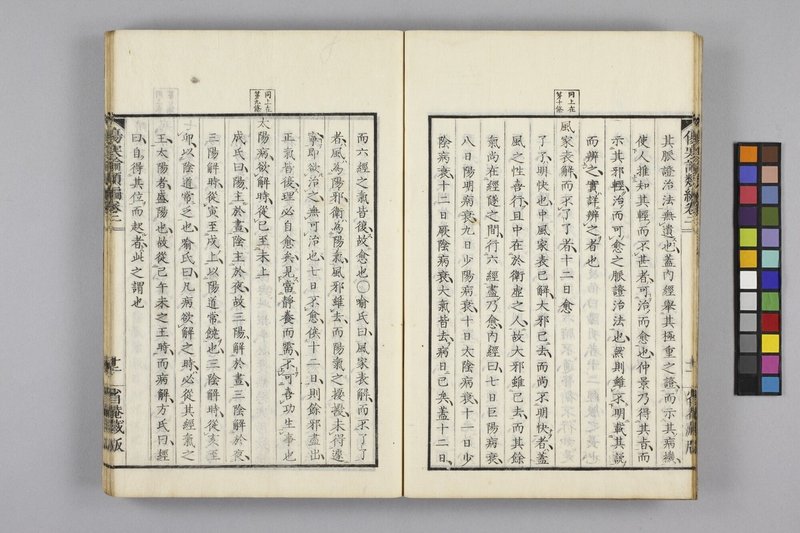 同上在
第十條
其脉證治法無遺也蓋内經舉其極重之證而示其病機
使人推知其輕而不甚者可治而愈也仲景乃得其旨而
示其邪輕治而可愈之脉證治法也然則雖不明載其説
而辨之實詳辨之者也
風家表解而不了了者十二日愈
了了明快也中風家表已解大邪已去而尚不明快者蓋
風之性善行且中在於衛虚之人故大邪雖已去而其餘
氣尚在經隧之間行六經盡乃愈内經曰七日巨陽病衰
八日陽明病衰九日少陽病衰十日太陰病衰十一日少
陰病衰十二日厥陰病衰大氣皆去病日已矣蓋十二日
傷寒論類編卷二
十二
省菴藏版
同上在
第九條
而六經之氣皆復故愈也○喻氏曰風家表解而不了了
者風為陽邪衛為陽氣風邪雖去而陽氣之擾擾未得遽
寧即欲治之無可治也七日不愈俟十二日則餘邪盡出
正氣皆復理必自愈矣見當靜養而需不可喜功生事也
太陽病欲解時從巳至未上
成氏曰陽主於晝陰主於夜故三陽解於晝三陰解於夜
三陽解時從寅至戌上以陽道常饒也三陰解時從亥至
卯以陰道常乏也喻氏曰凡病欲解之時必從其經氣之
王太陽者盛陽也故從巳午未之王時而病解方氏曰經
曰自得其位而起者此之謂也
傷寒論類編卷二
十二
省菴藏版